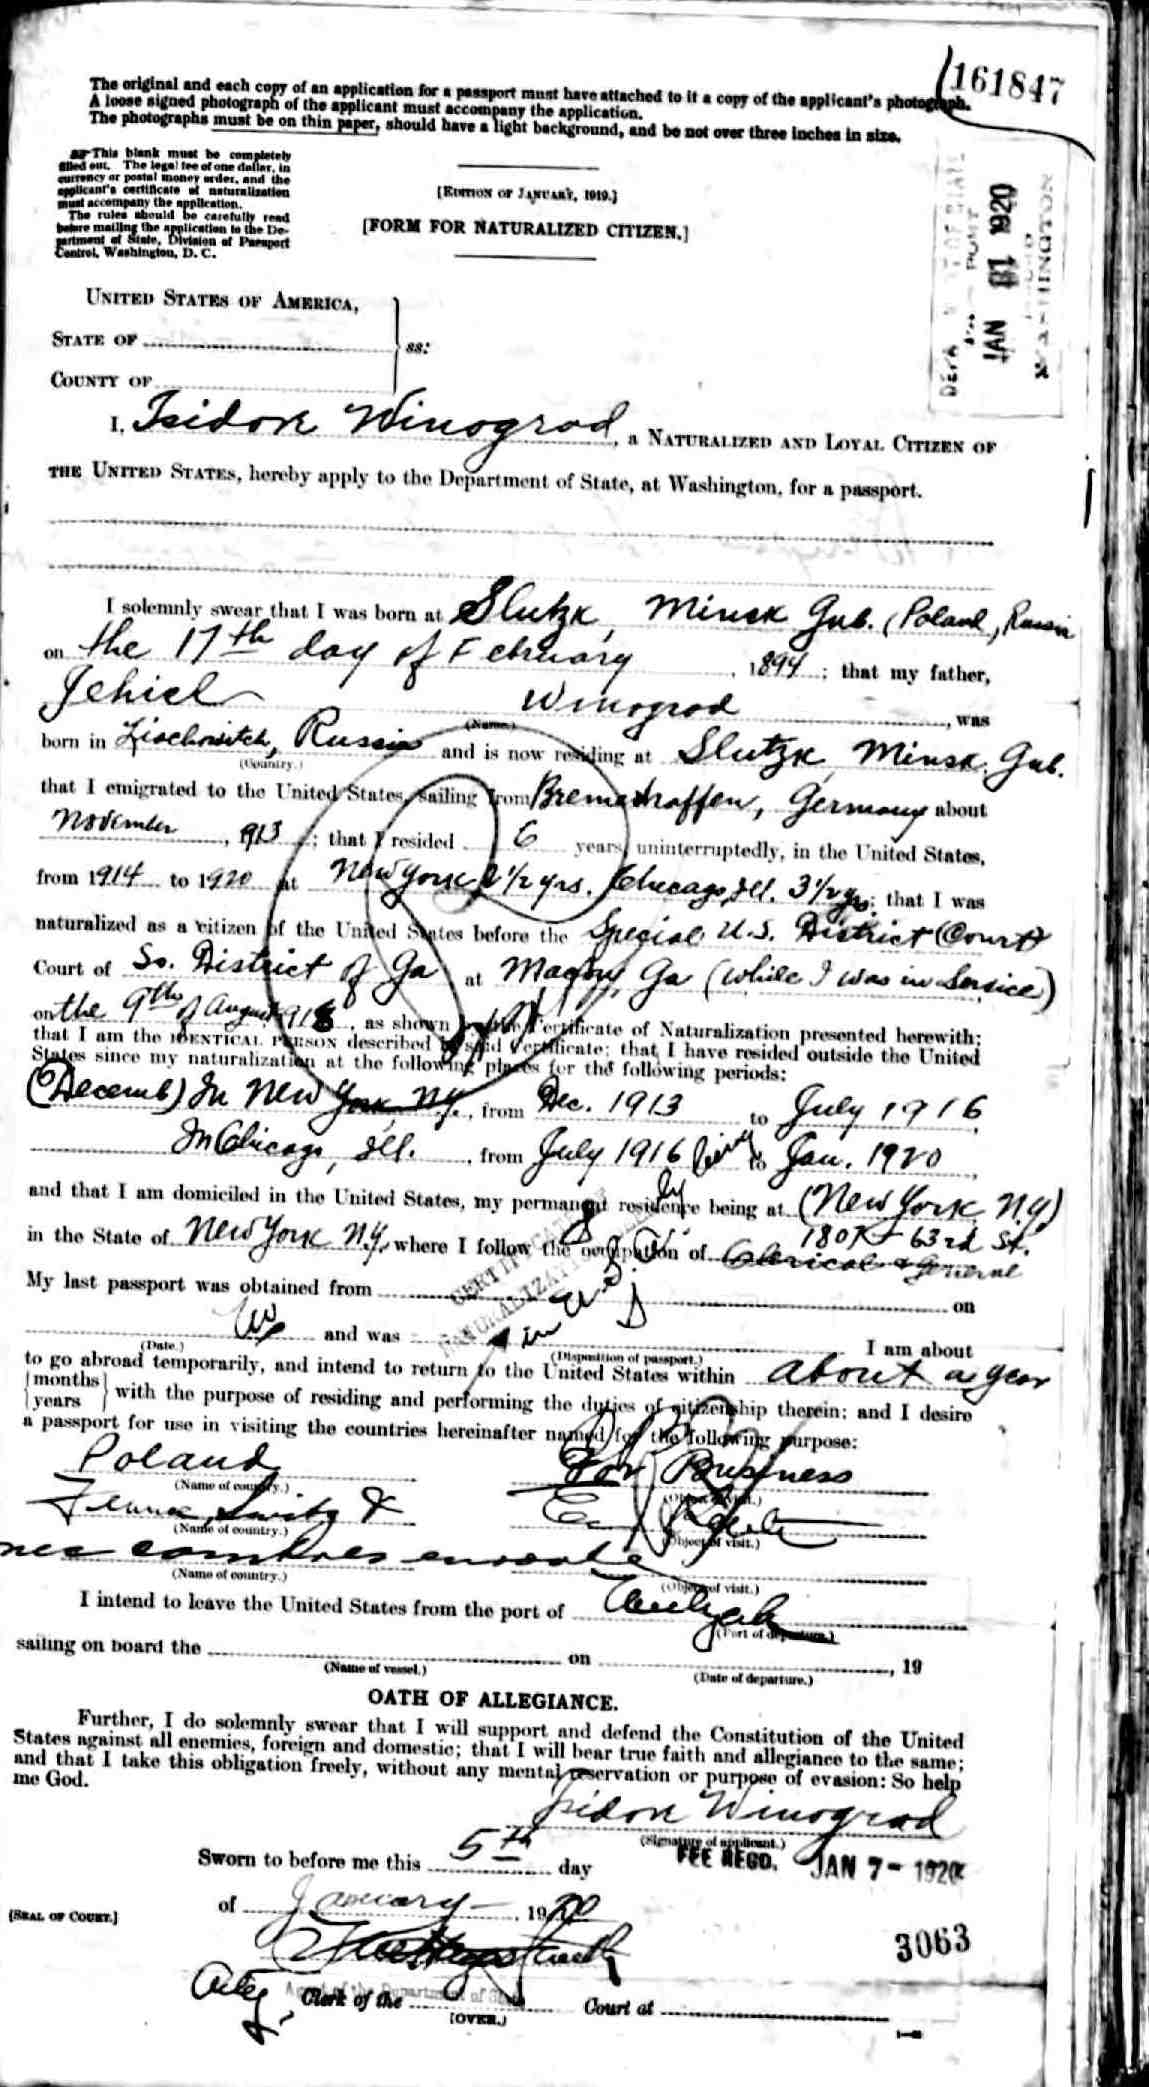 161847
The original and each copy of an application for a passport must have attached to it a copy of the applicant's photograph.
A loose signed photograph of the applicant must accompany the application.
The photographs must be on thin paper, should have a light background, and be not over three inches in size.
This blank must be completely
filled out. The legal fee of one dollar, in
currency or postal money order, and the
applicant's certificate of naturalization
must accompany the application.
The rules should be carefully read
before mailing the application to the De-
partment of State, Division of Passport
Control, Washington, D. C.
[EDITION OF JANUARY, 1919.]
[FORM FOR NATURALIZED CITIZEN.]
JAN 1920
WASHINGTON
UNITED STATES OF AMERICA,
STATE OF
ss:
COUNTY OF
I, Isidore Winograd, a NATURALIZED AND LOYAL CITIZEN OF
THE UNITED STATES, hereby apply to the Department of State, at Washington, for a passport.
I solemnly swear that I was born at Slutzk, Minsk Gub. (Poland, Russia
on the 17th day of February, 1894; that my father,
Jehiel Winograd, was
(Name.)
born in Russia and is now residing at Slutzk, Minsk Gub.
(Country.)
that I emigrated to the United States, sailing from Bremerhaffen, Germany about
November, 1913; that I resided 6 years, uninterruptedly, in the United States,
from 1914 to 1920 at New York 2 1/2 yrs. Chicago, Ill. 3 1/2 yrs; that I was
naturalized as a citizen of the United States before the Special U.S. District (Court)
Court of So. District of Ga at Macon, Ga (while I was in Service)
on the 9th of August 1918, as shown by the Certificate of Naturalization presented herewith;
that I am the IDENTICAL PERSON described in said Certificate; that I have resided outside the United
States since my naturalization at the following places for the following periods:
(Decemb) In New York, N.Y., from Dec. 1913 to July 1916
In Chicago, Ill., from July 1916 to Jan. 1920,
and that I am domiciled in the United States, my permanent residence being at (New York, N.Y)
1807 - 63rd St.
in the State of New York N.Y, where I follow the occupation of Clerical & General
CERTIFICATE
NATURALIZATION
My last passport was obtained from on
and was I am about
(Date.) (Disposition of passport.)
to go abroad temporarily, and intend to return to the United States within about a year
{months
{years} with the purpose of residing and performing the duties of citizenship therein; and I desire
a passport for use in visiting the countries hereinafter named for the following purpose:
Poland For Business
(Name of country.) (Object of visit.)
France, Switz &
(Name of country.) (Object of visit.)
nec countries enroute
(Name of country.) (Object of visit.)
I intend to leave the United States from the port of
(Port of departure.)
sailing on board the on , 19
(Name of vessel.) (Date of departure.)
OATH OF ALLEGIANCE.
Further, I do solemnly swear that I will support and defend the Constitution of the United
States against all enemies, foreign and domestic; that I will bear true faith and allegiance to the same;
and that I take this obligation freely, without any mental reservation or purpose of evasion: So help
me God.
Isidore Winograd
(Signature of applicant.)
FEE RECD. JAN 7 - 1920
Sworn to before me this 5th day
[SEAL OF COURT.] of January, 1920
3063
Agent of the Department of State
Clerk of the Court at
[OVER.]